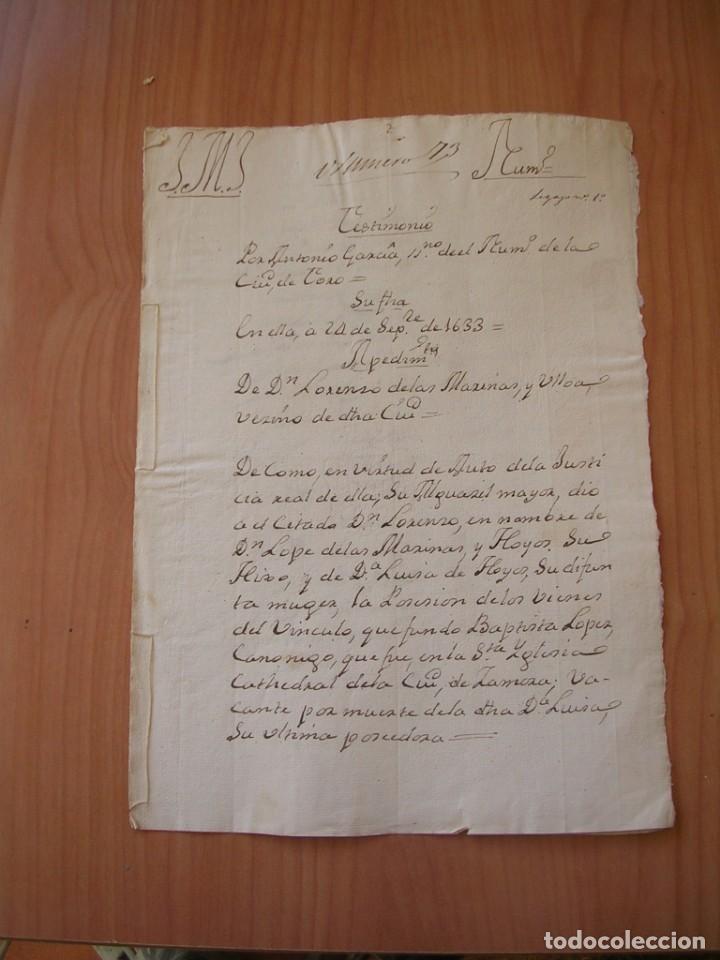 J.M.J. Numero 73 Num.o
Legajo n. 1.o
Testimonio
Por Antonio Garcia, ss.no del Num.o de la
Ciu.d de Toro =
Su fha
En ella, à 24 de Sep.re de 1633 =
Apedim.to
De D.n Lorenso delas Mariñas, y Ulloa,
vezino de dha Ciu.d =
De Como, en virtud de Auto dela Justi
cia real de ella; Su Alguazil mayor, dio
a el Citado D.n Lorenzo, en nombre de
D.n Lope delas Marinas, y Hoyos, Su
Hixo, y de D.a Luisa de Hoyos, Su difun
ta muger, la Posesion delos Vienes
del Vinculo, que fundo Baptista Lopez,
Canonigo, que fue, en la S.ta Yglesia
Cathedral dela Ciu.d de Zamora; Va-
cante por muerte dela dha D.a Luisa,
Su ultima poseedora =
todocoleccion
todocoleccion.net